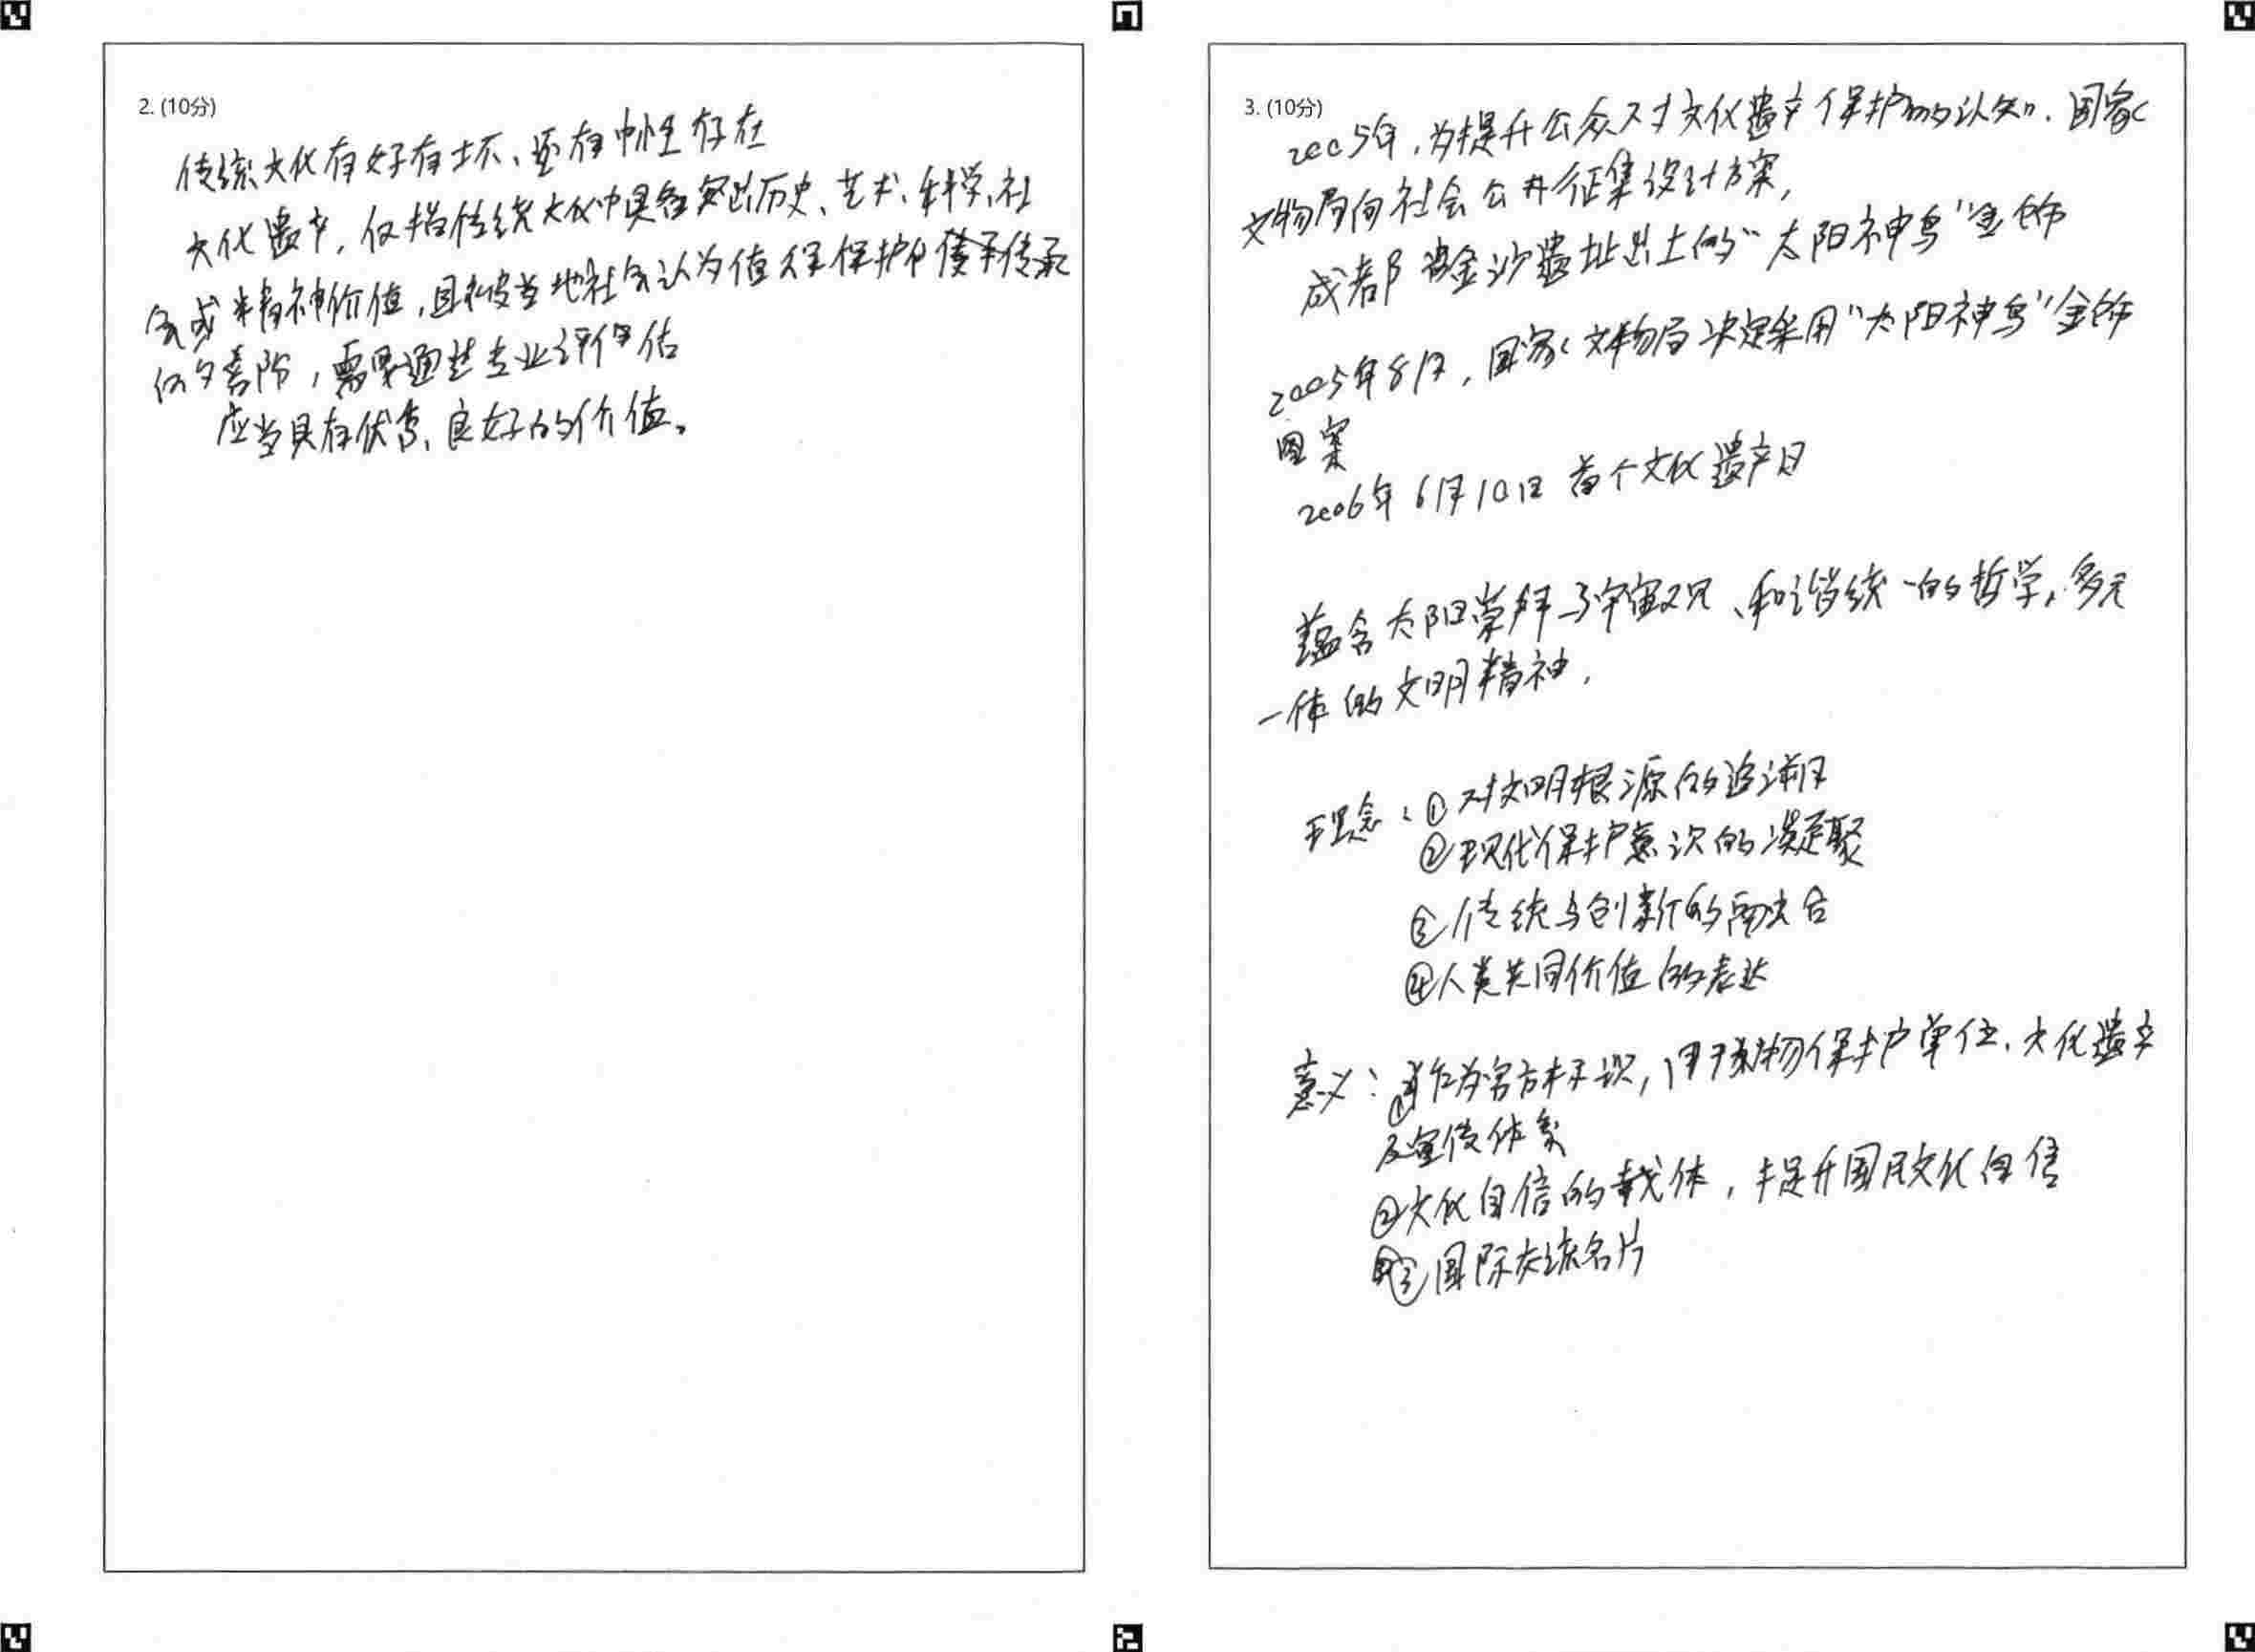 2. (10分)
传统文化有好有坏、还有中性存在
文化遗产，仅指传统文化中具备突出历史、艺术、科学、社
会或精神价值，且被当地社会认为值得保护和传承
的部分，需要通过专业评估
应当具有优秀、良好的价值。
3. (10分)
2005年，为提升公众对文化遗产保护的认知，国家
文物局向社会公开征集设计方案，
成都金沙遗址出土的“太阳神鸟”金饰
2005年8月，国家文物局决定采用“太阳神鸟”金饰
图案
2006年6月10日 首个文化遗产日
蕴含太阳崇拜与宇宙观、和谐统一的哲学，多元
一体的文明精神，
理念：①对文明根源的追溯
②现代保护意识的凝聚
③传统与创新的融合
④人类共同价值的表达
意义：①作为官方标识，用于文物保护单位、文化遗产
及宣传体系
②文化自信的载体，提升国民文化自信
③国际交流名片